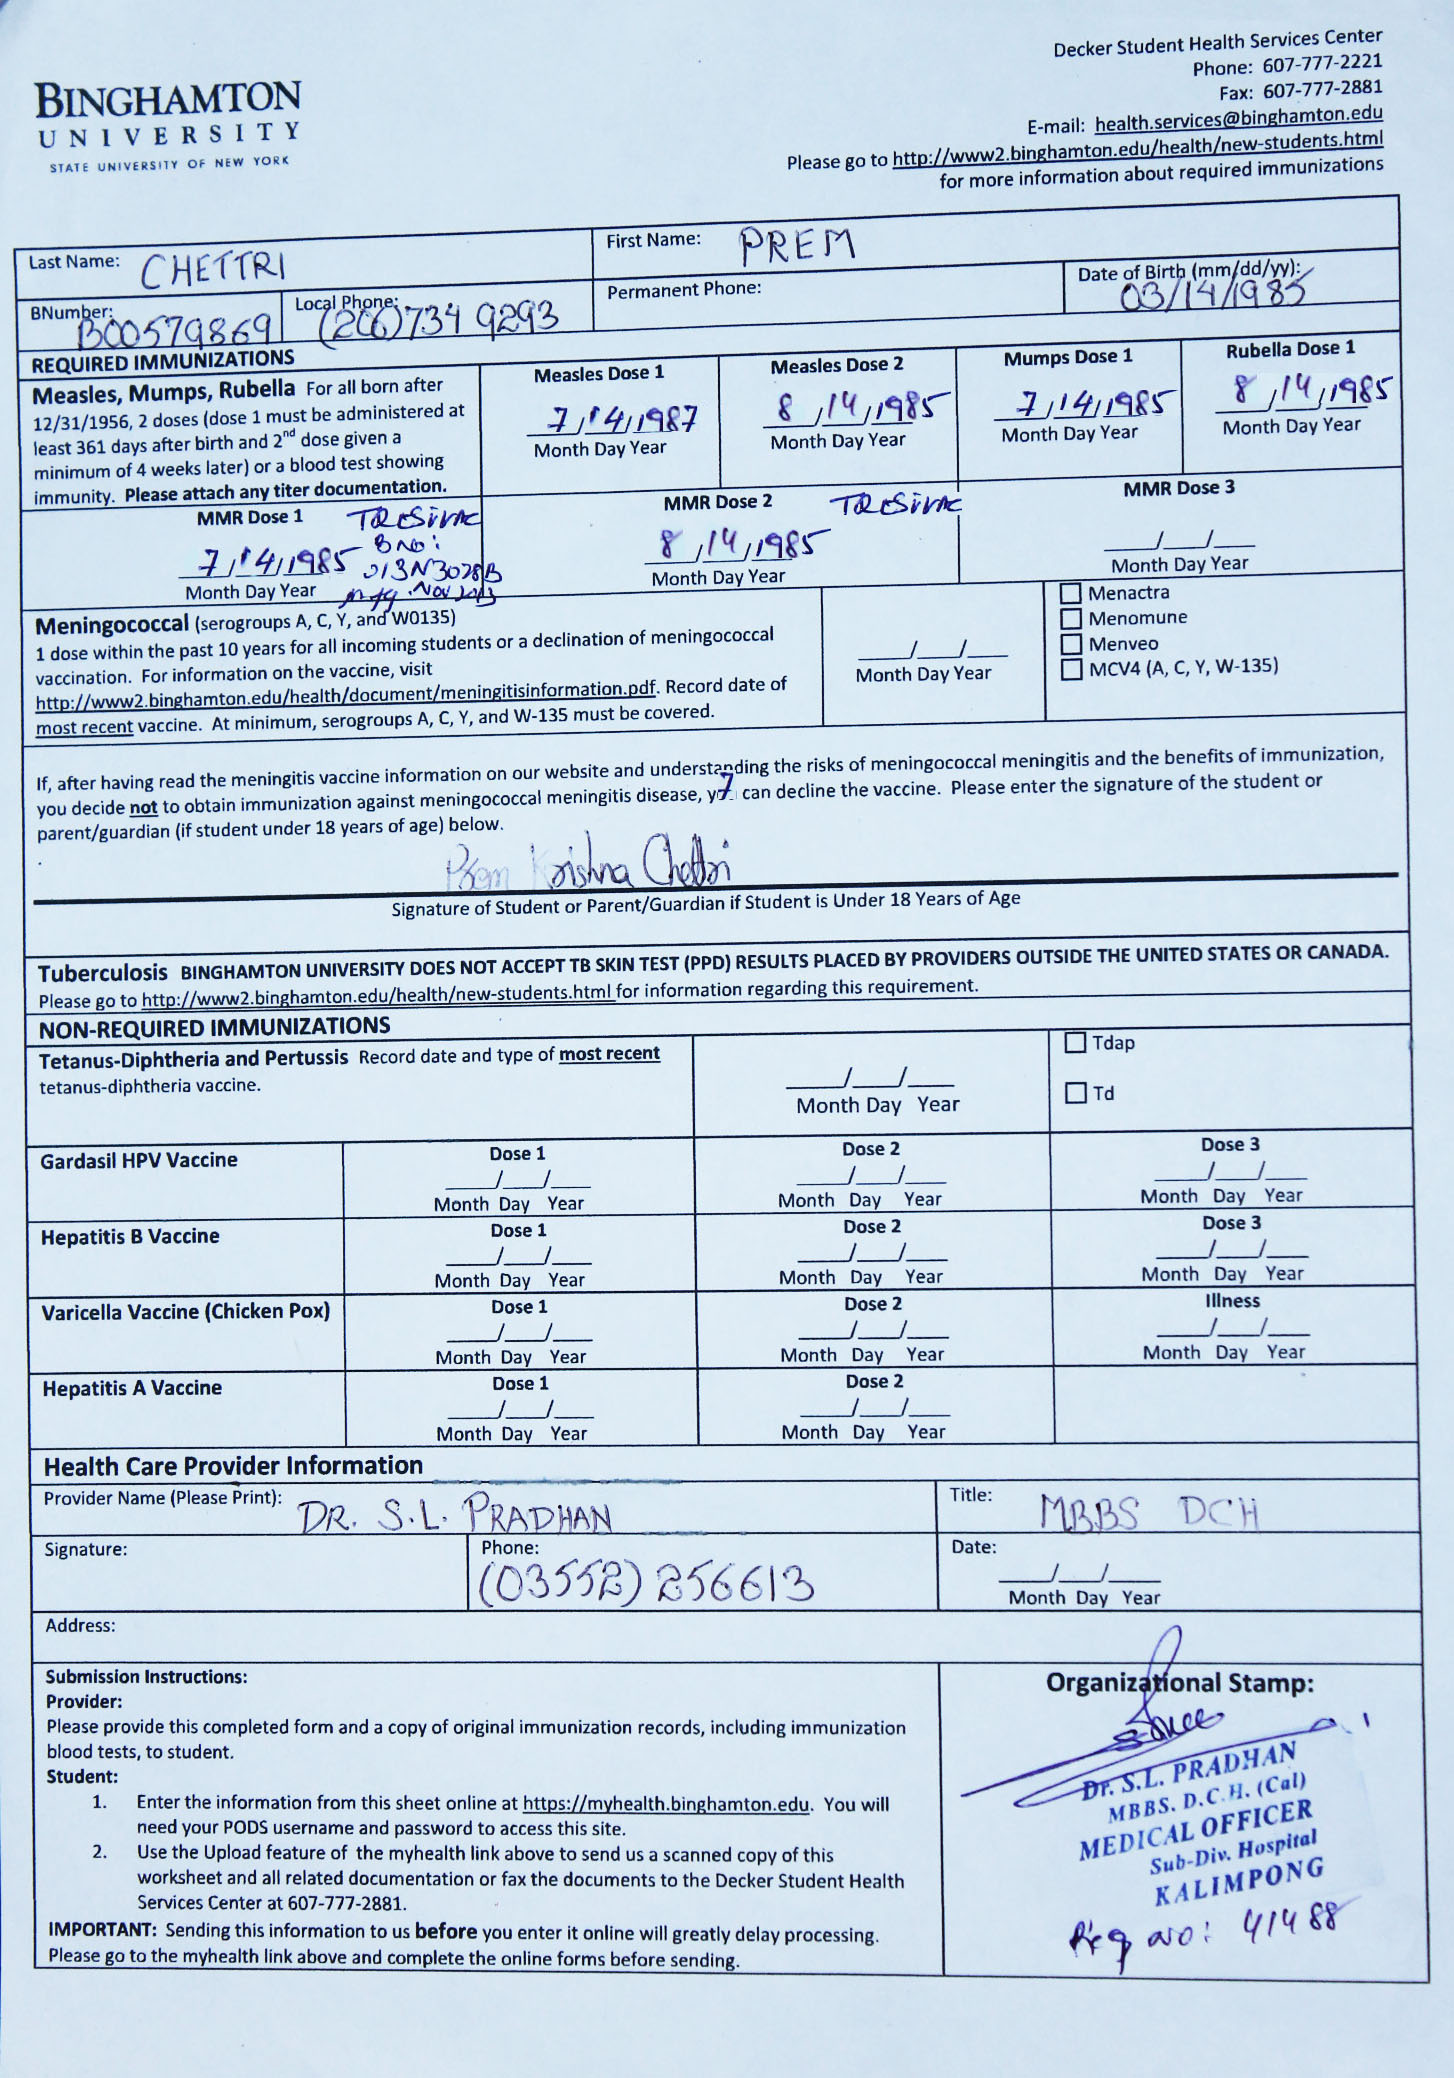 BINGHAMTON
UNIVERSITY
STATE UNIVERSITY OF NEW YORK
Decker Student Health Services Center
Phone: 607-777-2221
Fax: 607-777-2881
E-mail: health.services@binghamton.edu
Please go to http://www2.binghamton.edu/health/new-students.html
for more information about required immunizations
Last Name: CHETTRI
First Name: PREM
BNumber: B00579869
Local Phone: (206)734 9293
Permanent Phone:
Date of Birth (mm/dd/yy): 03/14/1985
REQUIRED IMMUNIZATIONS
Measles, Mumps, Rubella For all born after
12/31/1956, 2 doses (dose 1 must be administered at
least 361 days after birth and 2nd dose given a
minimum of 4 weeks later) or a blood test showing
immunity. Please attach any titer documentation.
Measles Dose 1
7/14/1987
Month Day Year
Measles Dose 2
8/14/1985
Month Day Year
Mumps Dose 1
7/14/1985
Month Day Year
Rubella Dose 1
8/14/1985
Month Day Year
MMR Dose 1 TRESIVAC
7/14/1985 B No:
013N3028B
Month Day Year Mfg. Nov 2013
MMR Dose 2 TRESIVAC
8/14/1985
Month Day Year
MMR Dose 3
___/___/___
Month Day Year
Meningococcal (serogroups A, C, Y, and W0135)
1 dose within the past 10 years for all incoming students or a declination of meningococcal
vaccination. For information on the vaccine, visit
http://www2.binghamton.edu/health/document/meningitisinformation.pdf. Record date of
most recent vaccine. At minimum, serogroups A, C, Y, and W-135 must be covered.
___/___/___
Month Day Year
☐ Menactra
☐ Menomune
☐ Menveo
☐ MCV4 (A, C, Y, W-135)
If, after having read the meningitis vaccine information on our website and understanding the risks of meningococcal meningitis and the benefits of immunization,
you decide not to obtain immunization against meningococcal meningitis disease, can decline the vaccine. Please enter the signature of the student or
parent/guardian (if student under 18 years of age) below.
Prem Krishna Chettri
Signature of Student or Parent/Guardian if Student is Under 18 Years of Age
Tuberculosis BINGHAMTON UNIVERSITY DOES NOT ACCEPT TB SKIN TEST (PPD) RESULTS PLACED BY PROVIDERS OUTSIDE THE UNITED STATES OR CANADA.
Please go to http://www2.binghamton.edu/health/new-students.html for information regarding this requirement.
NON-REQUIRED IMMUNIZATIONS
Tetanus-Diphtheria and Pertussis Record date and type of most recent
tetanus-diphtheria vaccine.
___/___/___
Month Day Year
☐ Tdap
☐ Td
Gardasil HPV Vaccine
Dose 1
___/___/___
Month Day Year
Dose 2
___/___/___
Month Day Year
Dose 3
___/___/___
Month Day Year
Hepatitis B Vaccine
Dose 1
___/___/___
Month Day Year
Dose 2
___/___/___
Month Day Year
Dose 3
___/___/___
Month Day Year
Varicella Vaccine (Chicken Pox)
Dose 1
___/___/___
Month Day Year
Dose 2
___/___/___
Month Day Year
Illness
___/___/___
Month Day Year
Hepatitis A Vaccine
Dose 1
___/___/___
Month Day Year
Dose 2
___/___/___
Month Day Year
Health Care Provider Information
Provider Name (Please Print): DR. S.L. PRADHAN
Title: MBBS DCH
Signature:
Phone: (03552) 256613
Date:
___/___/___
Month Day Year
Address:
Submission Instructions:
Provider:
Please provide this completed form and a copy of original immunization records, including immunization
blood tests, to student.
Student:
1. Enter the information from this sheet online at https://myhealth.binghamton.edu. You will
need your PODS username and password to access this site.
2. Use the Upload feature of the myhealth link above to send us a scanned copy of this
worksheet and all related documentation or fax the documents to the Decker Student Health
Services Center at 607-777-2881.
IMPORTANT: Sending this information to us before you enter it online will greatly delay processing.
Please go to the myhealth link above and complete the online forms before sending.
Organizational Stamp:
Dr. S.L. PRADHAN
MBBS. D.C.H. (Cal)
MEDICAL OFFICER
Sub-Div. Hospital
KALIMPONG
Reg no: 41488